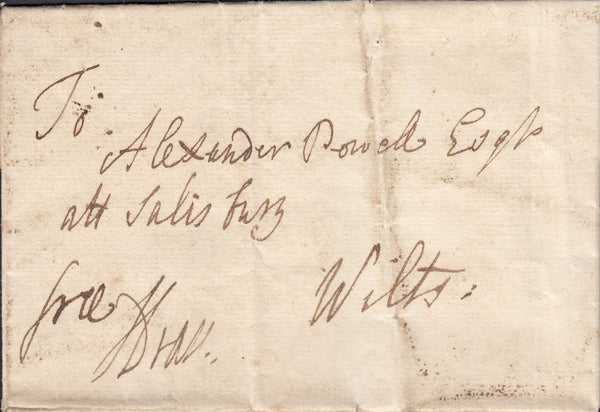 To
Alexander Powell Esqr
att Salisbury
Wilts:
free